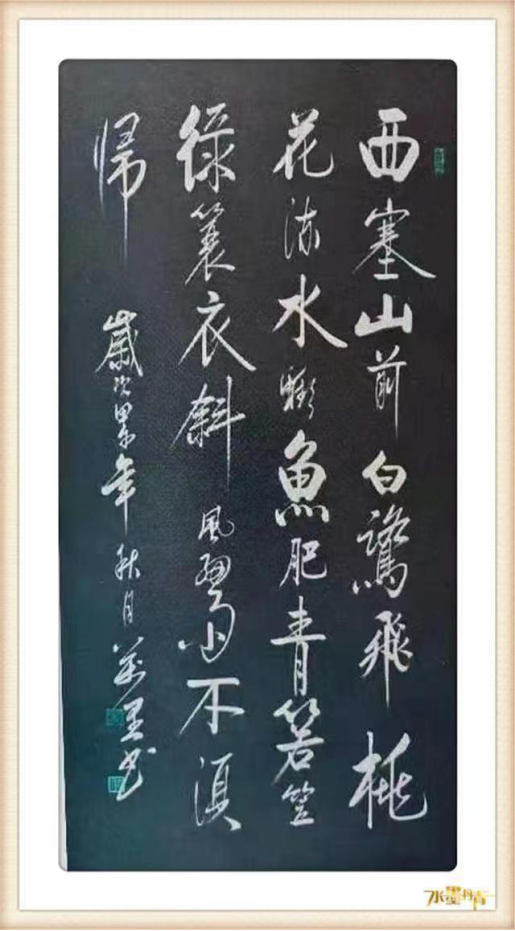 西塞山前白鷺飛桃
花流水鱖魚肥青箬笠
綠蓑衣斜風細雨不須
帰
歲次年秋月萬里书
水墨丹青